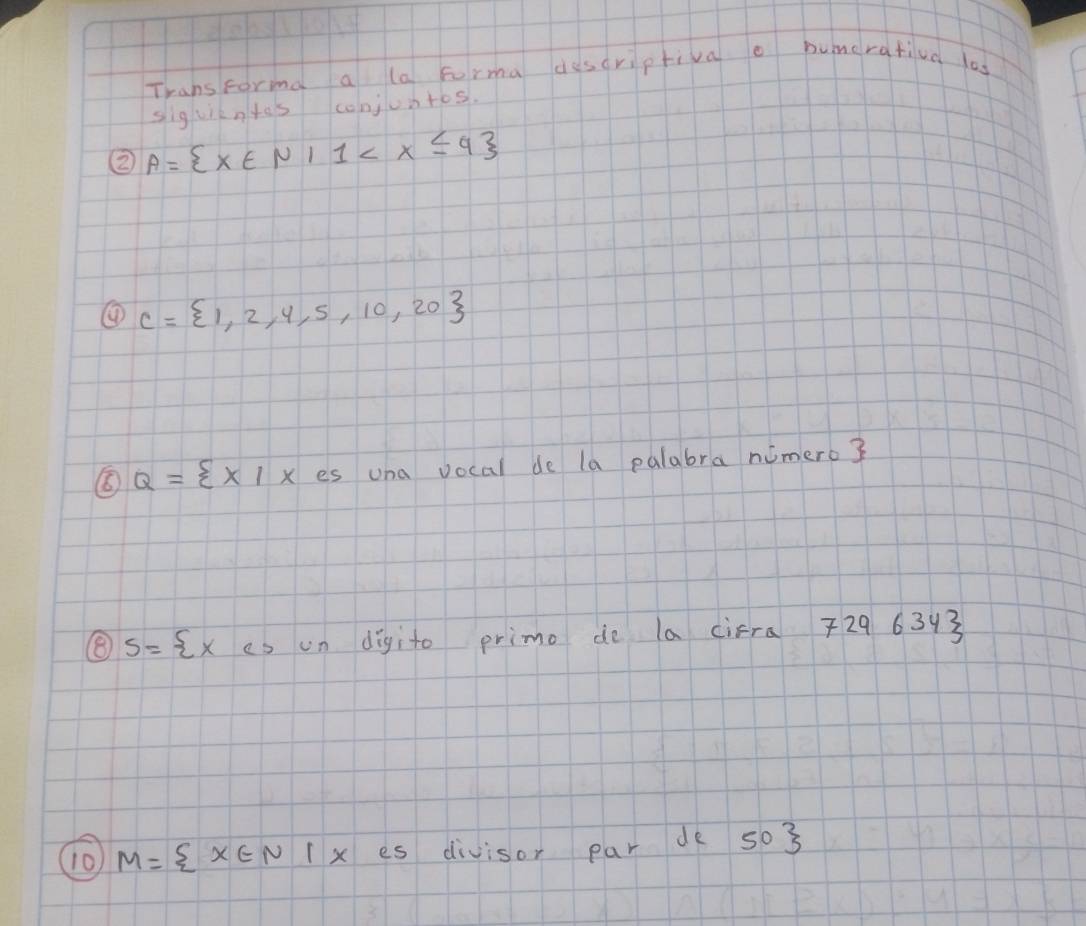 Transforma a la forma descriptiva o numerativa los
siguientes conjuntos.
② A = {x ∈ N | 1 < x ≤ 9}
④ C = {1, 2, 4, 5, 10, 20}
⑥ Q = {x | x es una vocal de la palabra número}
⑧ S = {x es un dígito primo de la cifra 729 634}
⑩ M = {x ∈ N | x es divisor par de 50}